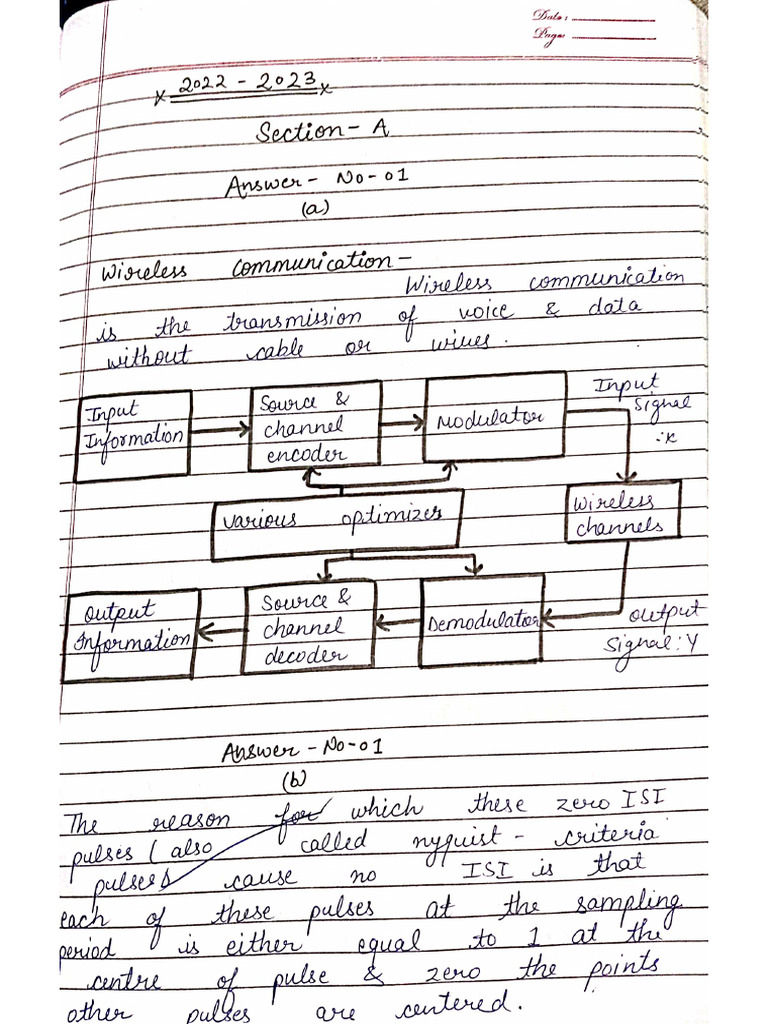 Date:
Page:
x 2022 - 2023 x
Section - A
Answer - No - 01
(a)
Wireless Communication -
Wireless communication
is the transmission of voice & data
without cable or wires.
Input
Information
Source &
channel
encoder
Modulator
Input
Signal
:x
Various optimizer
Wireless
channels
Output
Information
Source &
channel
decoder
Demodulator
Output
Signal: Y
Answer - No - 01
(b)
The reason for which these zero ISI
pulses (also called nyquist - criteria
pulses) cause no ISI is that
each of these pulses at the sampling
period is either equal to 1 at the
centre of pulse & zero the points
other pulses are centered.